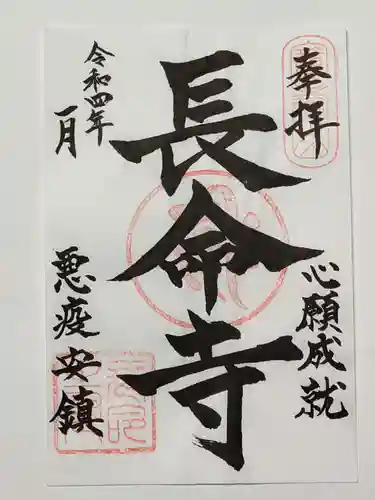 奉拝
心願成就
長命寺
令和四年
一月
悪疫安鎮